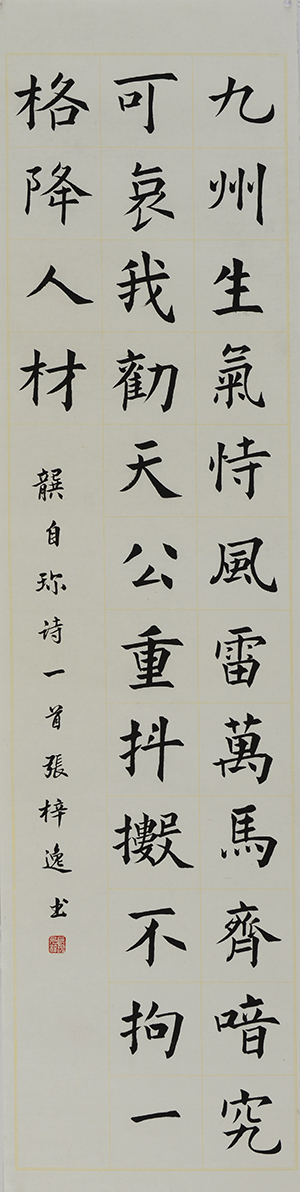 九州生氣恃風雷萬馬齊喑究
可哀我勸天公重抖擻不拘一
格降人材
龔自珍诗一首張梓逸书